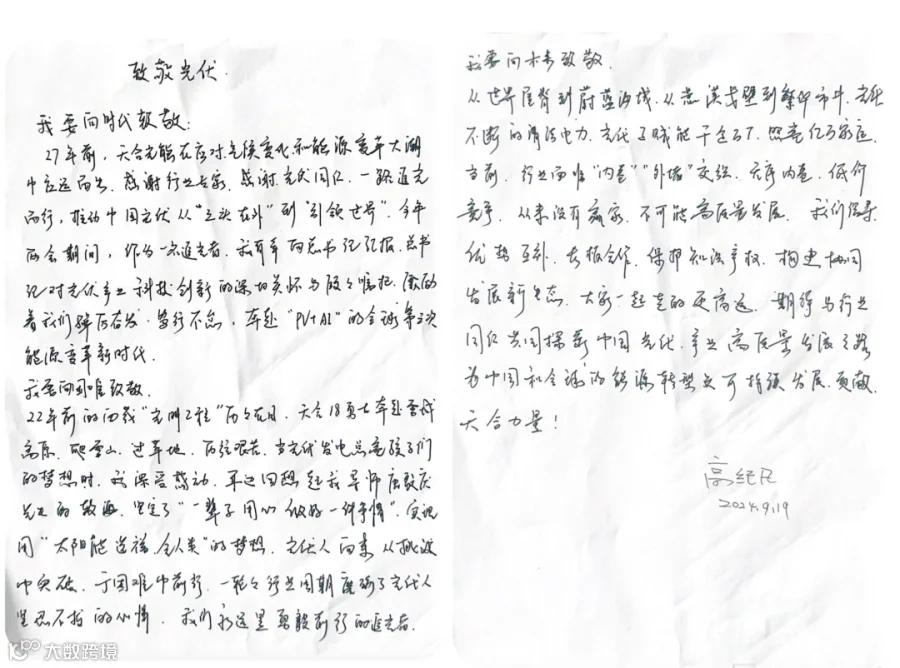 致敬光伏.
我要向时代致敬:
27年前,天合光能在应对气候变化和能源变革大潮
中应运而生。感谢行业专家、感谢光伏同仁,一路追光
而行,推动中国光伏从“三头在外”到“引领世界”。今年
两会期间,作为一名追光者,我有幸向总书记汇报,总书
记对光伏产业科技创新的深切关怀与殷殷嘱托,激励
着我们踔厉奋发、笃行不怠,奔赴“PV+AI”的全球第三次
能源变革新时代.
我要向困难致敬.
22年前的西藏“光明工程”历历在目,天合18勇士奔赴雪域
高原、爬雪山、过草地、历经艰苦。当光伏发电点亮孩子们
的梦想时,我深受感动,再次回想起我导师唐敖庆
先生的教诲,坚定了“一辈子用心做好一件事情”,实现
用“太阳能造福全人类”的梦想。光伏人向来从挑战
中突破、于困难中前行,一轮轮行业周期磨砺了光伏人
坚忍不拔的心性,我们永远是勇毅前行的追光者.
我要向未来致敬.
从世界屋脊到蔚蓝海域,从荒漠戈壁到繁华都市,光伏
不断的清洁电力,光伏了赋能千企百厂、照亮亿万家庭.
当前,行业面临“内卷”“外堵”交织,无序内卷、低价
竞争,从来没有赢家,不可能高质量发展。我们倡导
优势互补、专利合作、保护知识产权、构建协同
发展新生态,大家一起走的更高远。期待与行业
同仁共同探索中国光伏产业高质量发展之路
为中国和全球的能源转型与可持续发展,贡献
天合力量!
高纪凡
2024.9.19
大数跨境